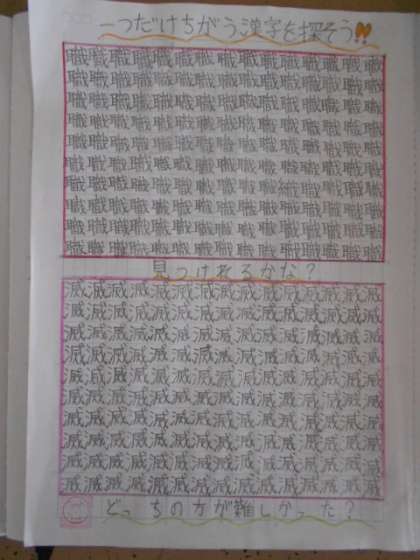 一つだけちがう漢字を探そう!!
職職職職職職職職職職職職職職
職職職職職職職職職職職職職職
職職職職職職職職職職職職職職
職職職職職職職職職職職職職職
職職職職職職職職職職職職職職
職職職職職職職職職職職職職職
職職職職職職職職職織職職職職
職職職職職職職職職職職職職職
職職職職職職職職職職職職職職
職職職職職職職職職職職職職職
見つけれるかな?
滅滅滅滅滅滅滅滅滅滅滅滅滅滅
滅滅滅滅滅滅滅滅滅滅滅滅滅滅
滅滅滅滅滅滅滅滅滅滅滅滅滅滅
滅滅滅滅滅滅滅滅滅滅滅滅滅滅
滅滅滅滅滅滅滅滅滅滅滅滅滅滅
滅滅滅滅滅滅滅滅滅滅滅滅滅滅
滅滅滅滅滅滅滅滅滅滅滅滅滅滅
滅滅滅滅滅滅滅滅滅滅滅滅滅滅
滅滅滅滅滅滅滅滅滅滅滅滅滅滅
滅滅滅滅滅滅滅滅滅滅滅滅滅滅
どっちの方が難しかった?